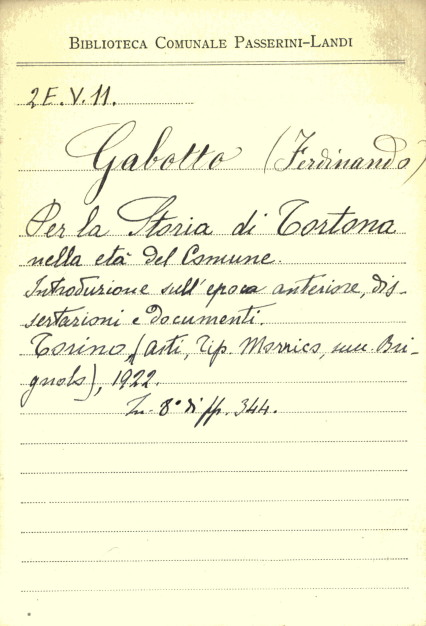 BIBLIOTECA COMUNALE PASSERINI-LANDI
2E.V.11.
Gabotto (Ferdinando)
Per la Storia di Tortona
nella età del Comune.
Introduzione sull'epoca anteriore, dis-
sertazioni e documenti.
Torino, (Asti, Tip. Morrics, succ. Bri-
gnolo), 1922.
In-8° di pp. 344.